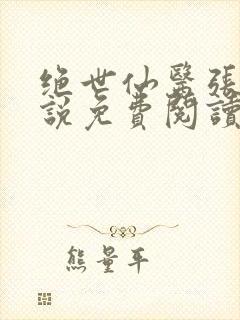 绝世仙醫張
説免費閱讀
熊量平